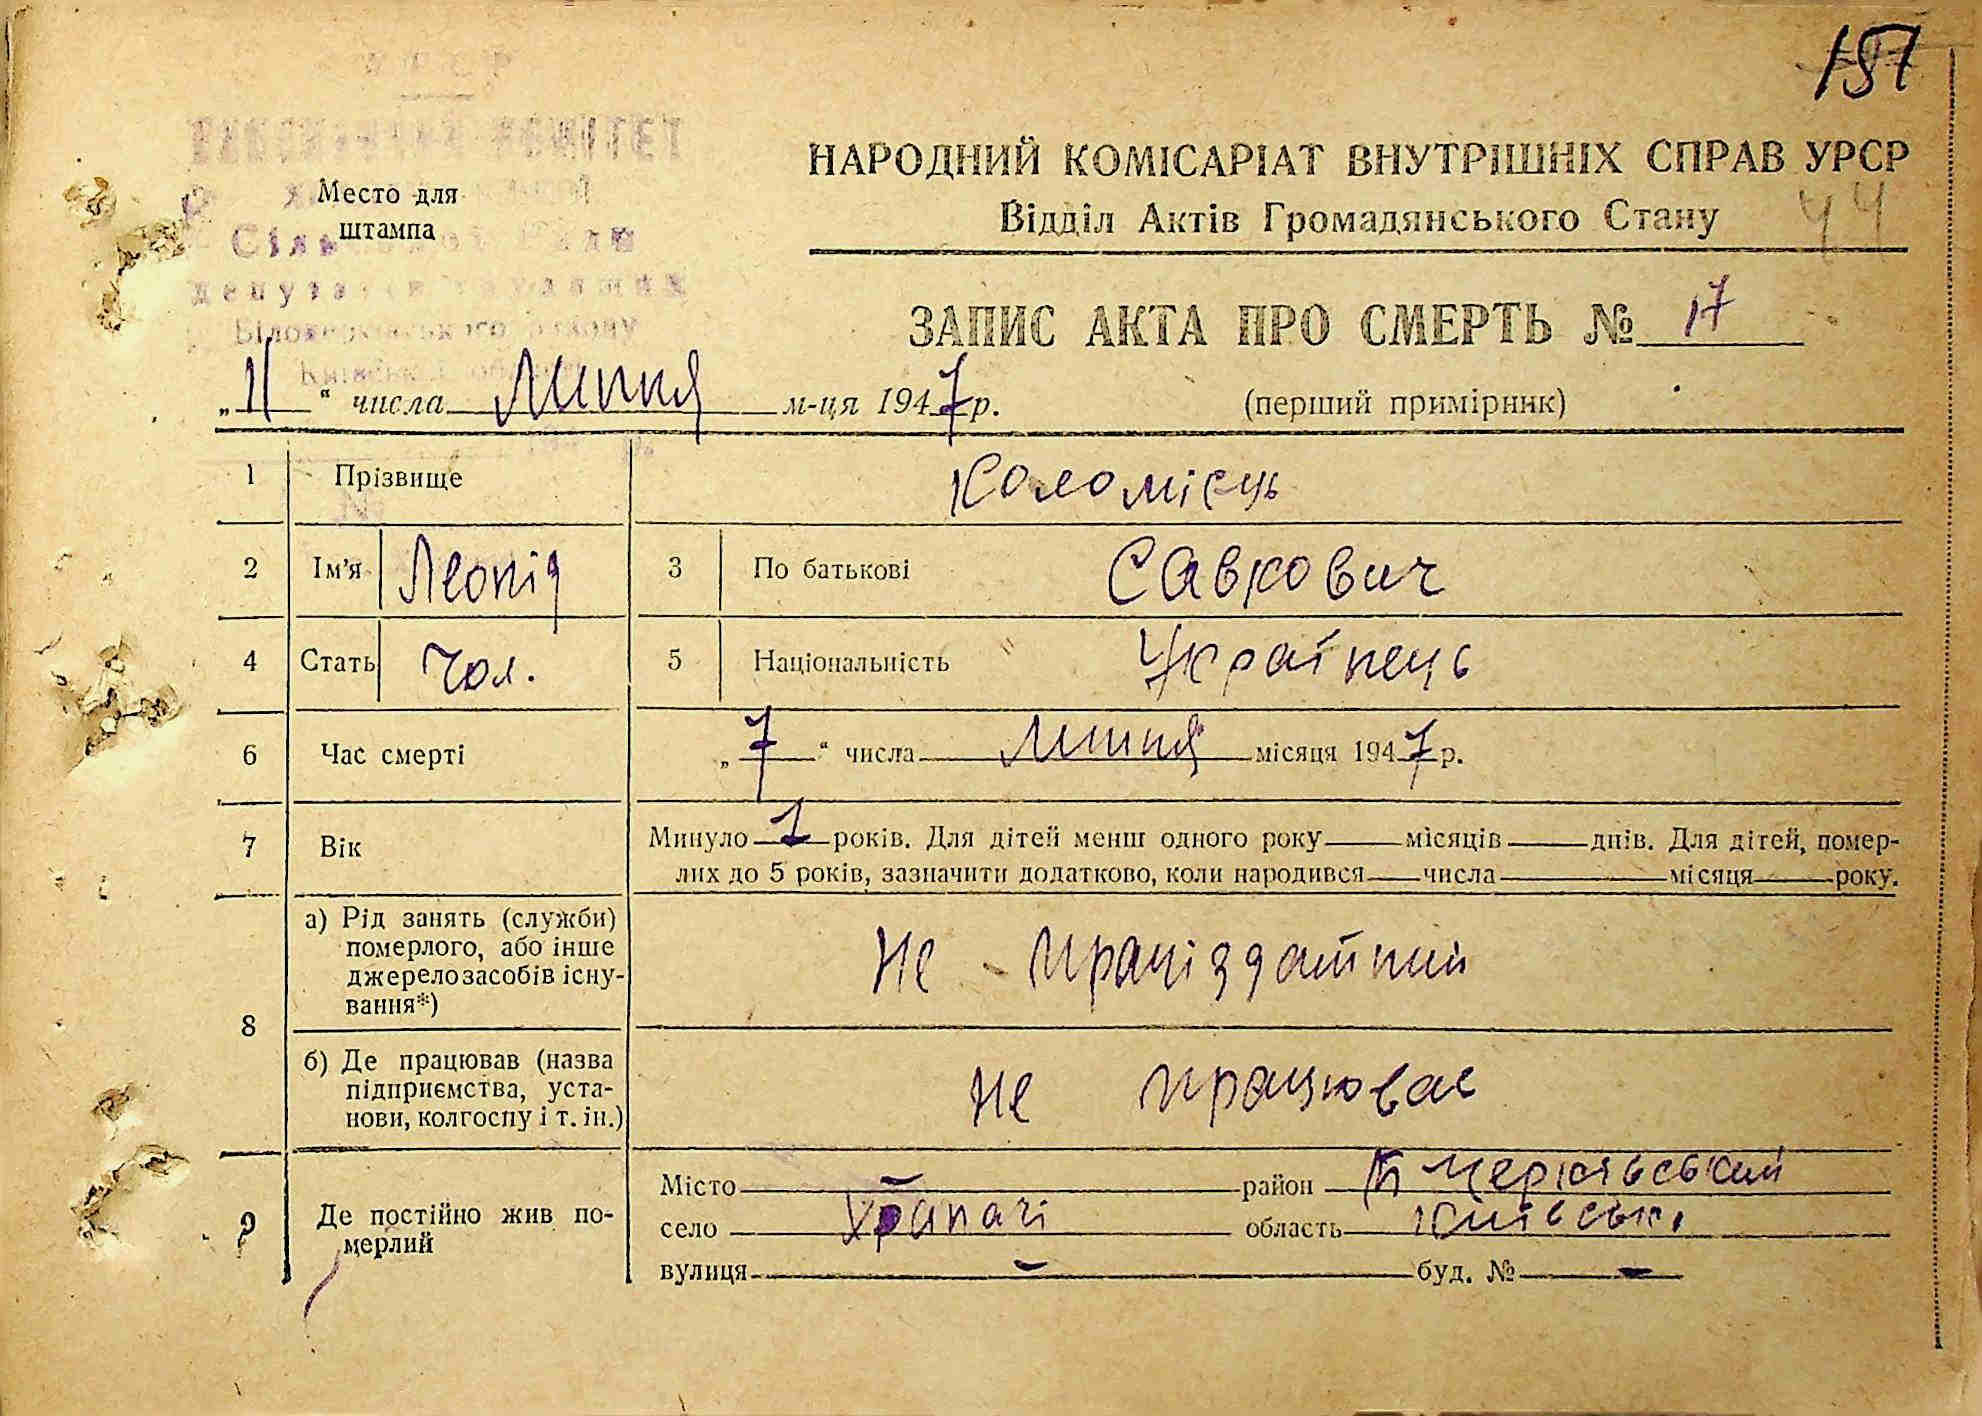 157
УРСР
КОМІТЕТ
Место для
штампа
НАРОДНИЙ КОМІСАРІАТ ВНУТРІШНІХ СПРАВ УРСР
Відділ Актів Громадянського Стану
44
депутатів трудящих
Білоцерківського району
ЗАПИС АКТА ПРО СМЕРТЬ № 17
„11“ числа Липня м-ця 1947 р. (перший примірник)
1 Прізвище Коломієць
№
2 Ім'я Леонід 3 По батькові Савкович
4 Стать Чол. 5 Національність Українець
6 Час смерті „7“ числа липня місяця 1947 р.
7 Вік Минуло 1 років. Для дітей менш одного року місяців днів. Для дітей, помер-
лих до 5 років, зазначити додатково, коли народився числа місяця року.
8 а) Рід занять (служби)
померлого, або інше
джерело засобів існу-
вання*) Не праціздатний
б) Де працював (назва
підприємства, уста-
нови, колгоспу і т. ін.) не працював
9 Де постійно жив по-
мерлий
Місто – район
село Храпачі область Київськ.
вулиця – буд. № –